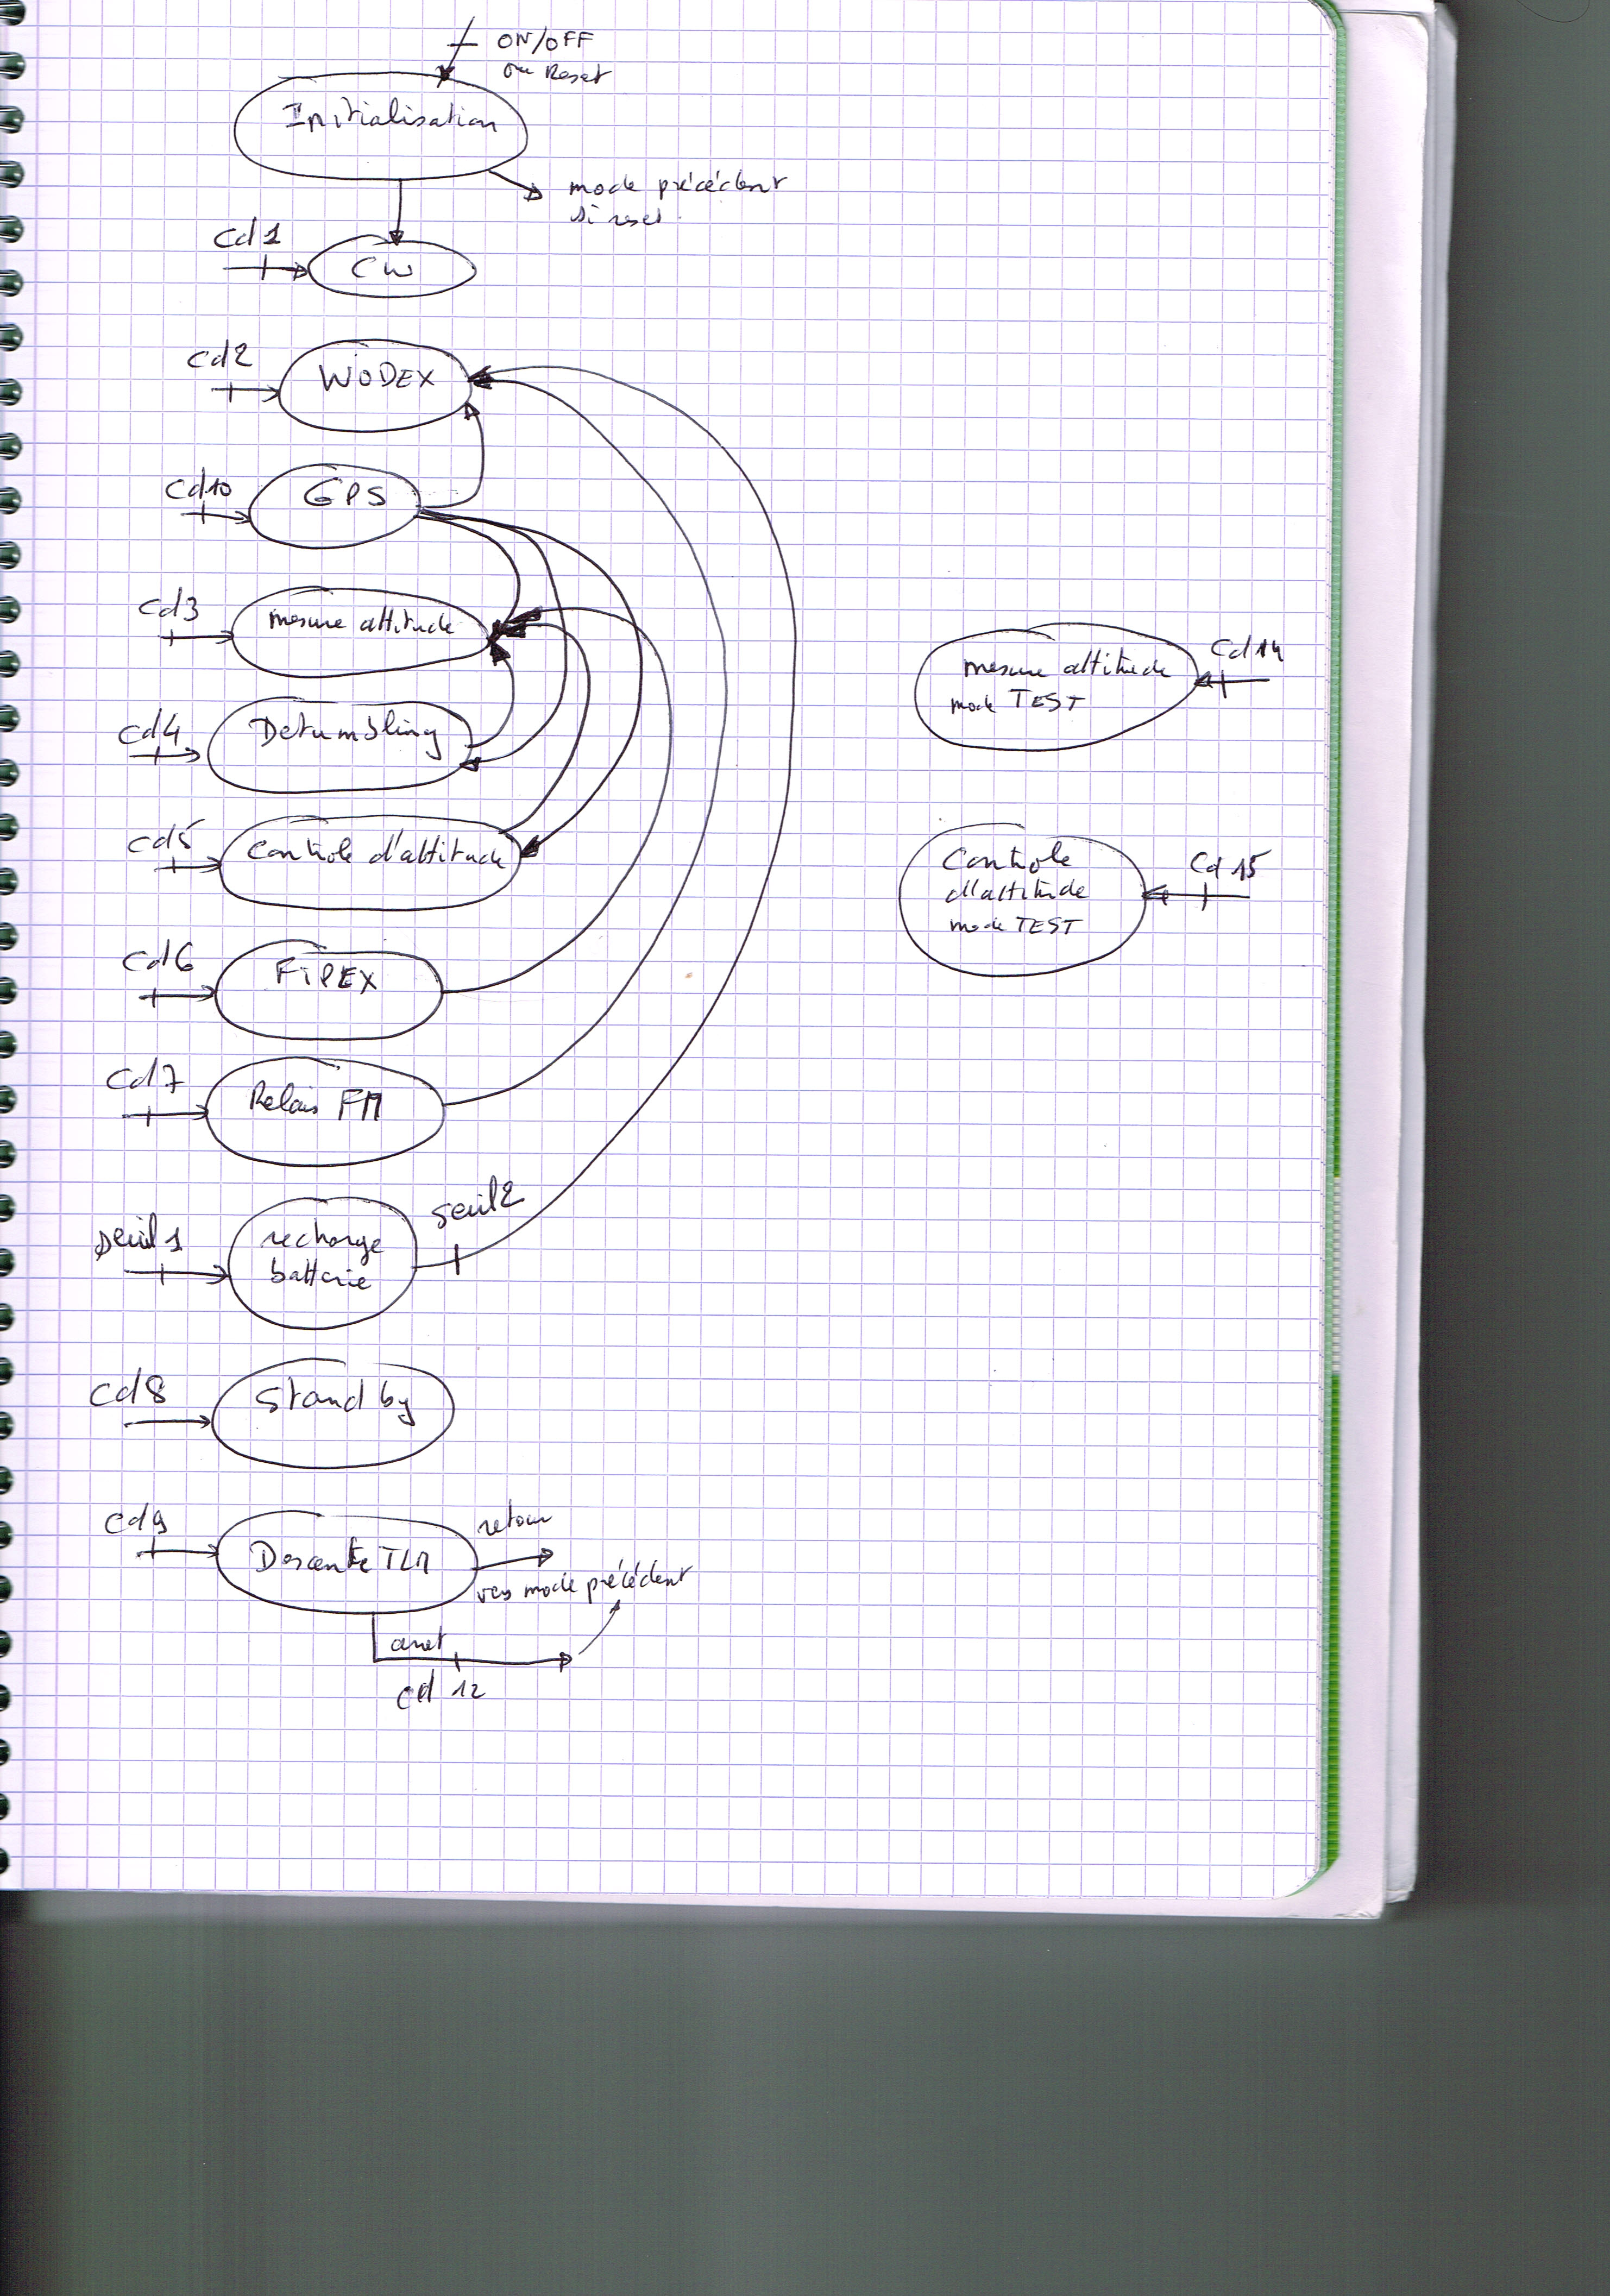 ON/OFF
ou Reset
Initialisation
mode précédent
si reset
Cd1
CW
Cd2
WODEX
Cd10
GPS
Cd3
mesure attitude
Cd4
Detumbling
Cd5
Contrôle d'attitude
Cd6
FIPEX
Cd7
Relais FM
seuil1
recharge
batterie
seuil2
Cd8
Stand by
Cd9
Descente TLM
retour
vers mode précédent
arret
cd 12
mesure attitude
mode TEST
Cd14
Controle
d'attitude
mode TEST
Cd15